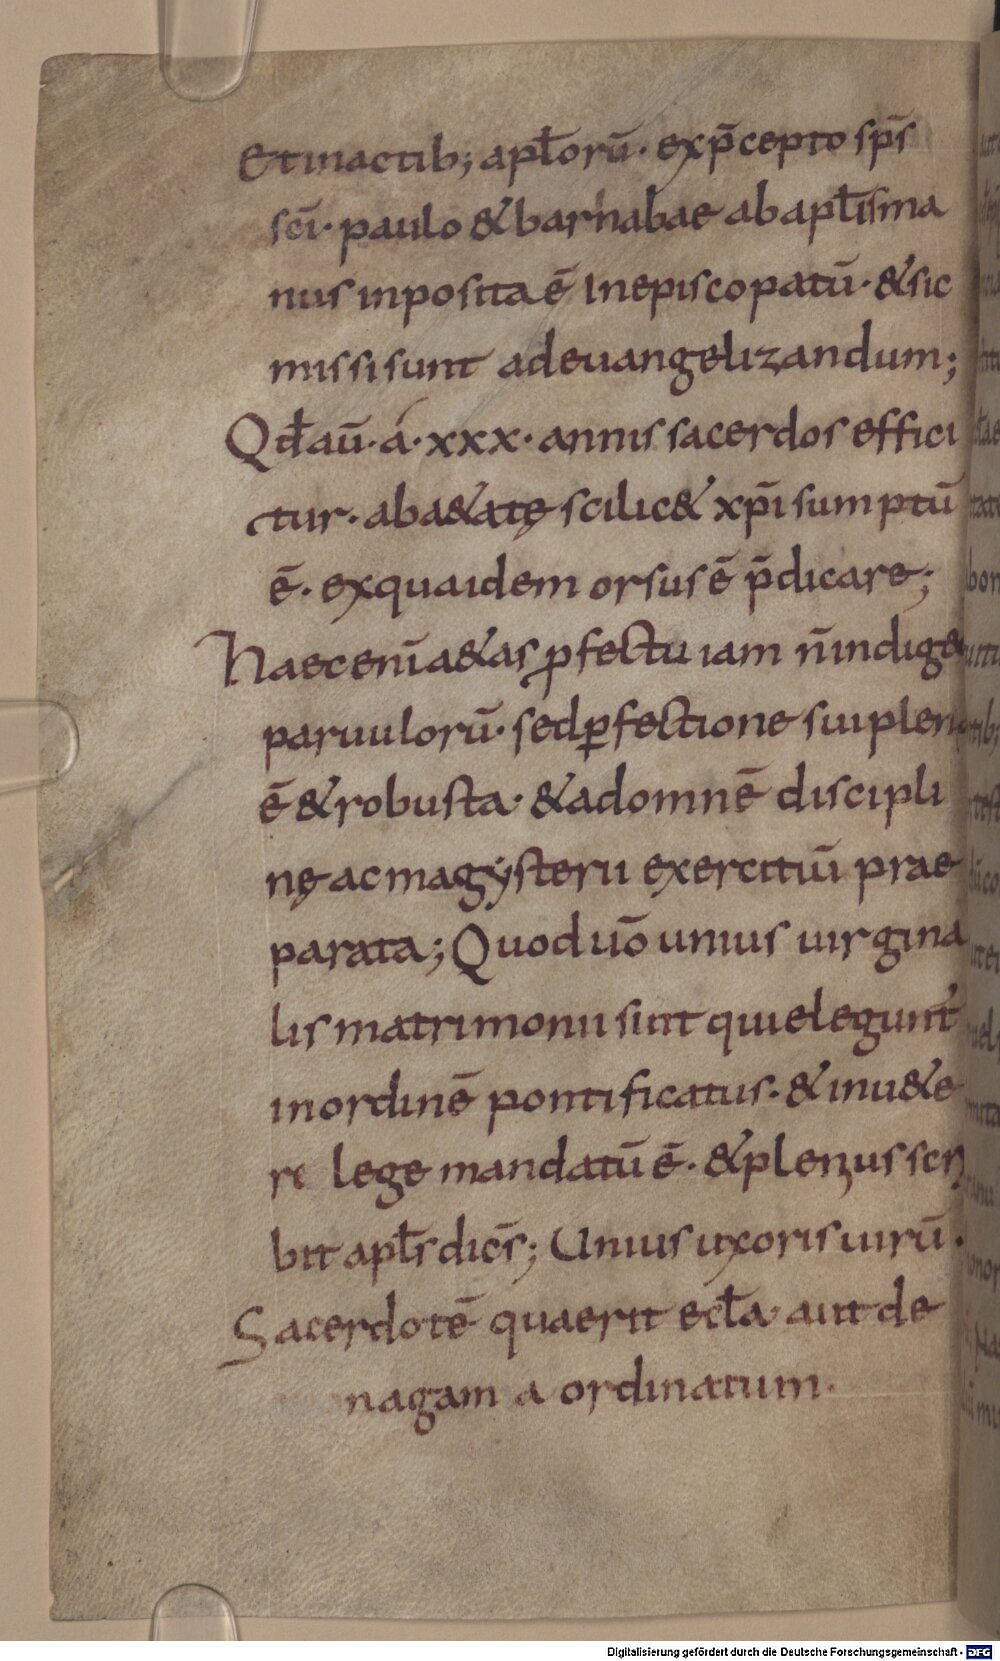 Et inactib; apƚorū· exp̄cepto sp̄s
sc̄i· paulo & barnabae abapƚis ma
nus inposita ē Inepiscopatū· & sic
missi sunt adeuangelizandum;
Qđ aū· a· xxx· annis sacerdos effici
tur· aba&atę scilic& xp̄i sumptū
ē· exquaidem orsus ē p̄dicare;
Haec eni̅ a&as ꝓfectu iam n̄ indig&
paruulorū· sed ꝑfectione sui plen
ē & robusta· & adomnē discipli
nę ac magẏsterii exercitiū prae
parata; Quod uō unius uirgina
lis matrimonii sint qui elegunt̄
inordinē pontificatus· & inu&e
re lege mandatū ē· & plenius scri
bit apƚs dicēs; Unius uxoris uirū·
Sacerdotē quaerit ecƚa aut de
nagam a ordinatum·
Digitalisierung gefördert durch die Deutsche Forschungsgemeinschaft - DFG